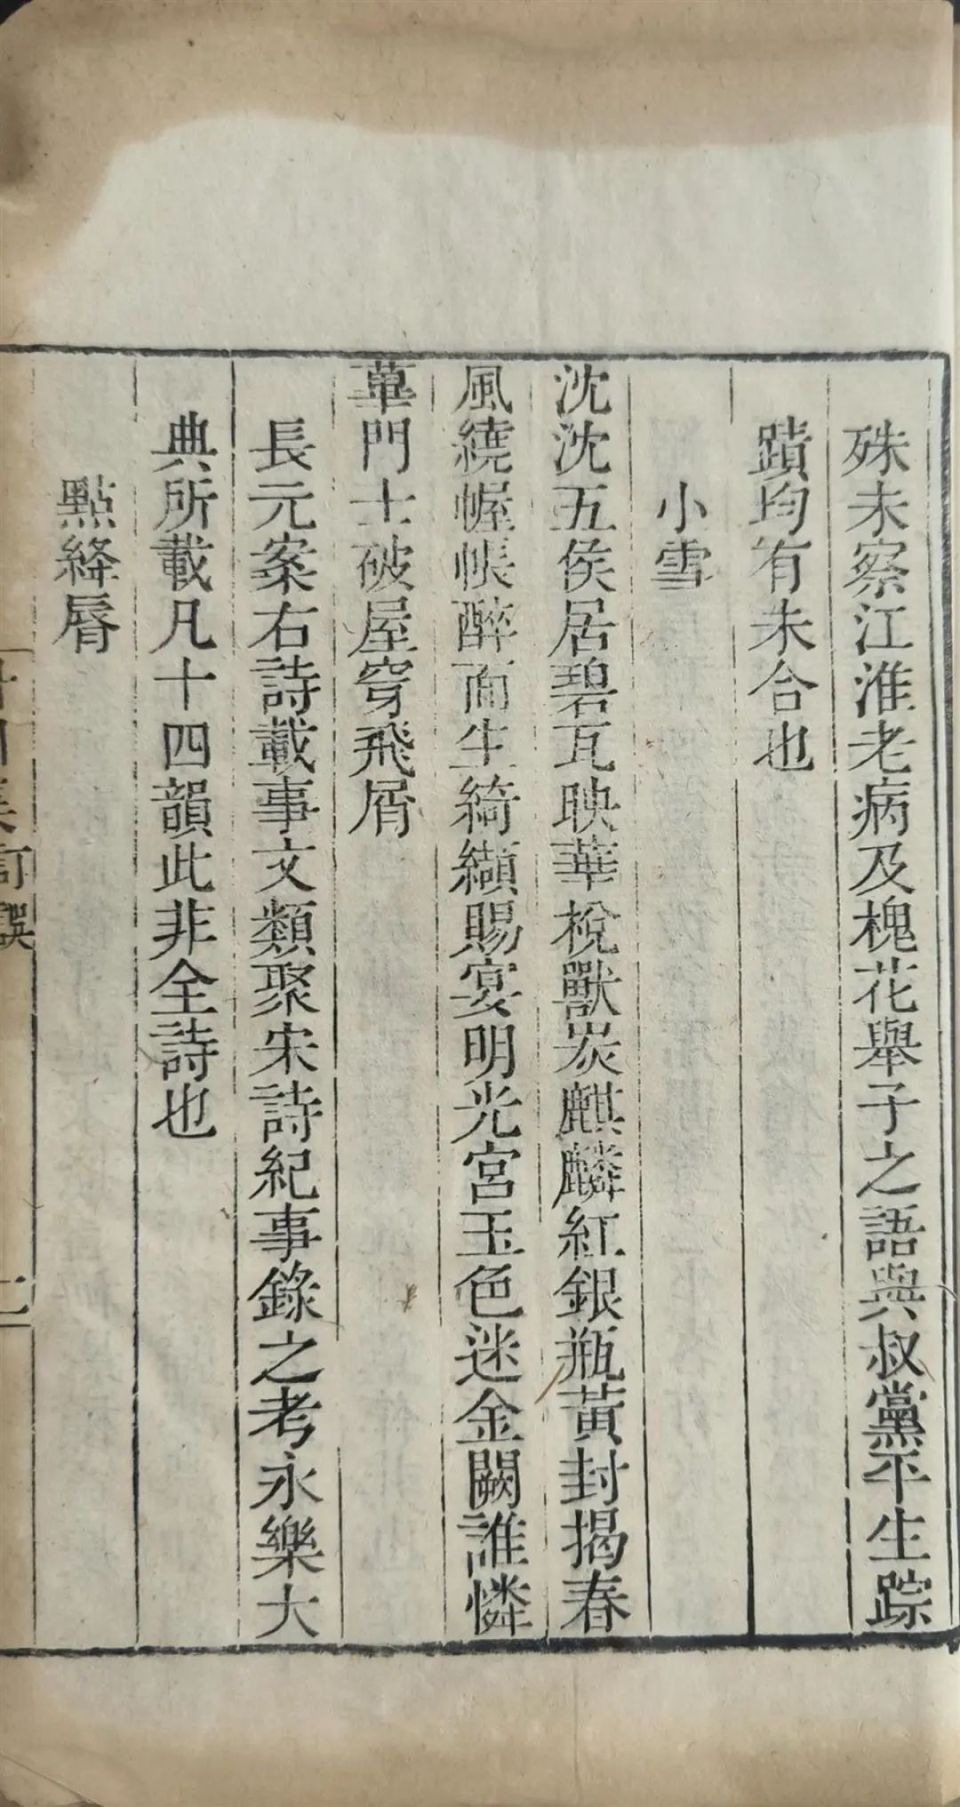 殊未察江淮老病及槐花舉子之語與叔黨平生踪
蹟均有未合也
小雪
沈沈五侯居碧瓦映華梲獸炭麒麟紅銀瓶黃封揭春
風繞幄帳醉面生綺纈賜宴明光宮玉色迷金闕誰憐
蓽門士破屋穿飛屑
長元案右詩載事文類聚宋詩紀事錄之考永樂大
典所載凡十四韻此非全詩也
點絳脣
訂誤
二